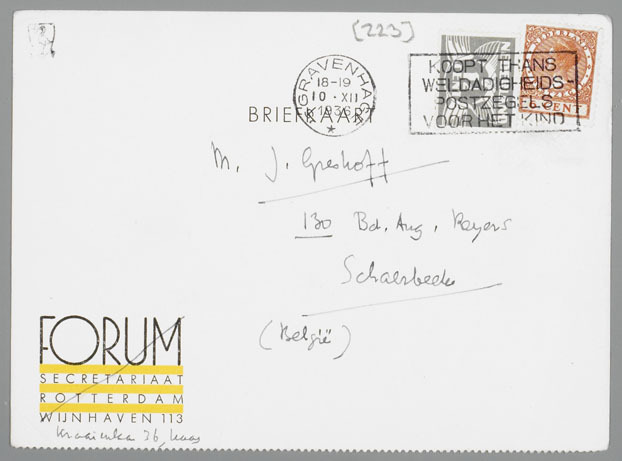 [223]
'S GRAVENHAGE
18-19
10·XII
1936
KOOPT THANS
WELDADIGHEIDS-
POSTZEGELS
VOOR HET KIND
NEDERLAND
CENT
BRIEFKAART
M. J. Greshoff
130 Bd. Aug. Reyers
Schaerbeek
(België)
FORUM
SECRETARIAAT
ROTTERDAM
WIJNHAVEN 113
Kraaienlaan 36, Haag